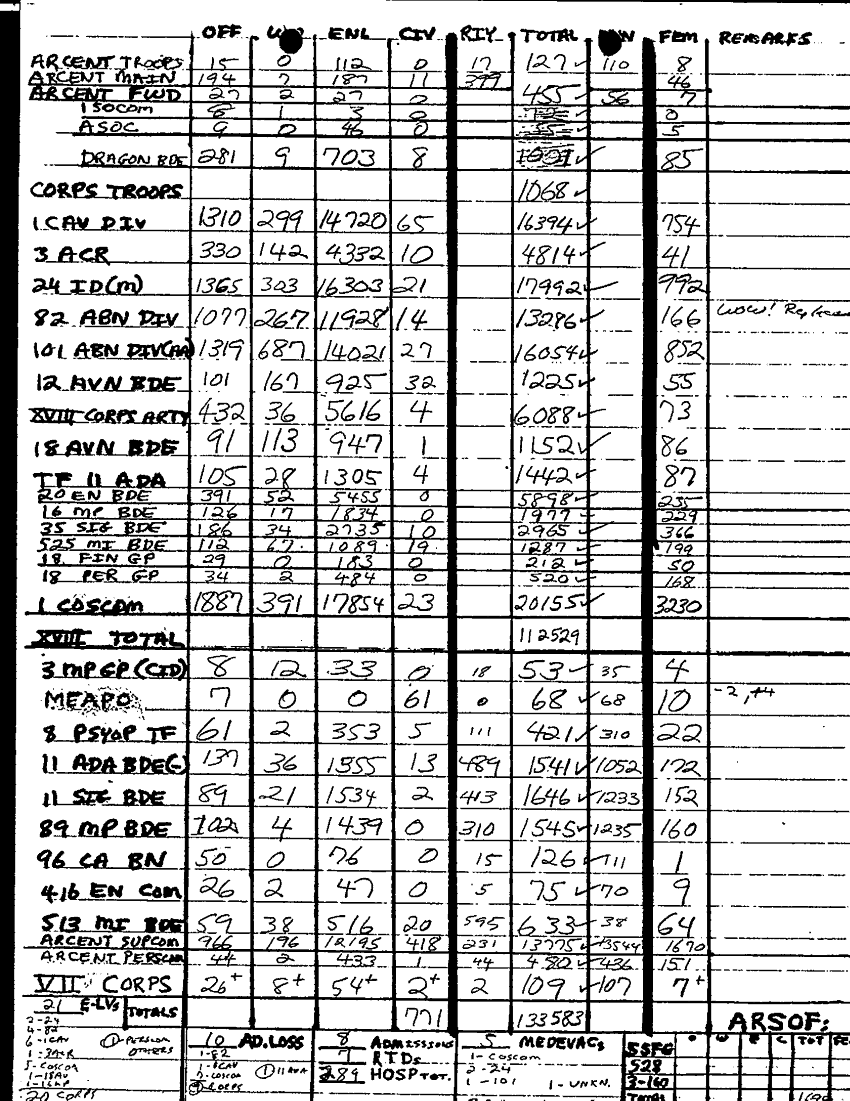 OFF ENL CIV RIY TOTAL FEM REMARKS
ARCENT TROOPS 15 0 112 0 17 127✓ 110 8
ARCENT MAIN 194 7 187 11 399 46
ARCENT FWD 27 2 27 0 455✓ 56 7
1 SOCOM 8 1 3 0 0
ASOC 9 0 46 0 55 5
DRAGON BDE 281 9 703 8 1001✓ 85
CORPS TROOPS 1068✓
1 CAV DIV 1310 299 14720 65 16394✓ 754
3 ACR 330 142 4332 10 4814✓ 41
24 ID(M) 1365 303 16303 21 17992✓ 992
82 ABN DIV 1077 267 11928 14 13286✓ 166 WOW!
101 ABN DIV(AA) 1319 687 14021 27 16054✓ 852
12 AVN BDE 101 167 925 32 1225✓ 55
XVIII CORPS ARTY 432 36 5616 4 6088✓ 73
18 AVN BDE 91 113 947 1 1152✓ 86
TF 11 ADA 105 28 1305 4 1442✓ 87
20 EN BDE 391 52 5455 0 5898✓ 235
16 MP BDE 126 17 1834 0 1977✓ 229
35 SIG BDE 186 34 2735 10 2965✓ 366
525 MI BDE 112 67 1089 19 1287✓ 199
18 FIN GP 29 0 183 0 212✓ 50
18 PER GP 34 2 484 0 520✓ 168
1 COSCOM 1887 391 17854 23 20155✓ 3230
XVIII TOTAL 112529
3 MP GP (CID) 8 12 33 0 18 53✓ 35 4
MEAPO 7 0 0 61 0 68✓ 68 10 -2, +4
8 PSYOP TF 61 2 353 5 111 421✓ 310 22
11 ADA BDE(-) 137 36 1355 13 489 1541✓ 1052 172
11 SIG BDE 89 21 1534 2 413 1646✓ 1233 152
89 MP BDE 102 4 1439 0 310 1545✓ 1235 160
96 CA BN 50 0 76 0 15 126✓ 111 1
416 EN COM 26 2 47 0 5 75✓ 70 9
513 MI BDE 59 38 516 20 595 633✓ 38 64
ARCENT SUPCOM 966 196 12195 418 231 13775✓ 13544 1670
ARCENT PERSCOM 44 2 433 1 44 480✓ 436 151
VII CORPS 26+ 8+ 54+ 2+ 2 109✓ 107 7+
21 E-LVs TOTALS 771 133583 ARSOF:
2-24 10 AD.LOSS 8 ADMISSIONS 5 MEDEVACs O W E C TOT FE
4-82 1-82 7 RTDs 1-COSCOM 5SFG
6-1CAV 1 PERSCOM 1-1CAV 1 11 AVA 289 HOSP TOT. 2-24 528
1-3ACR OTHERS 1-101 1-UNKN. 3-160
5-COSCOM
1-18AV
1-16MP
20 CORPS CORPS TOTAL